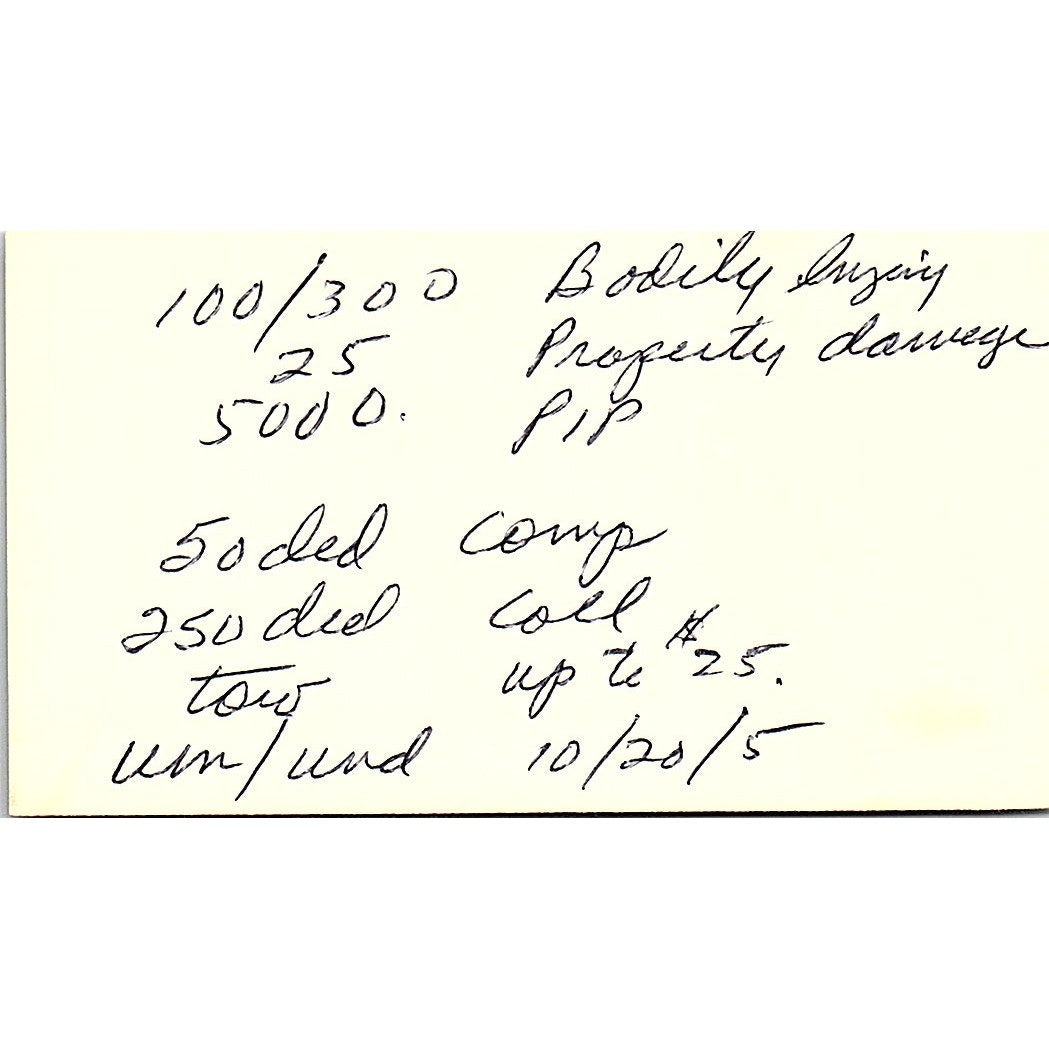 100/300 Bodily Injury
25 Property damage
5000. PIP
50 ded comp
250 ded coll
tow up to $25.
um/und 10/20/5